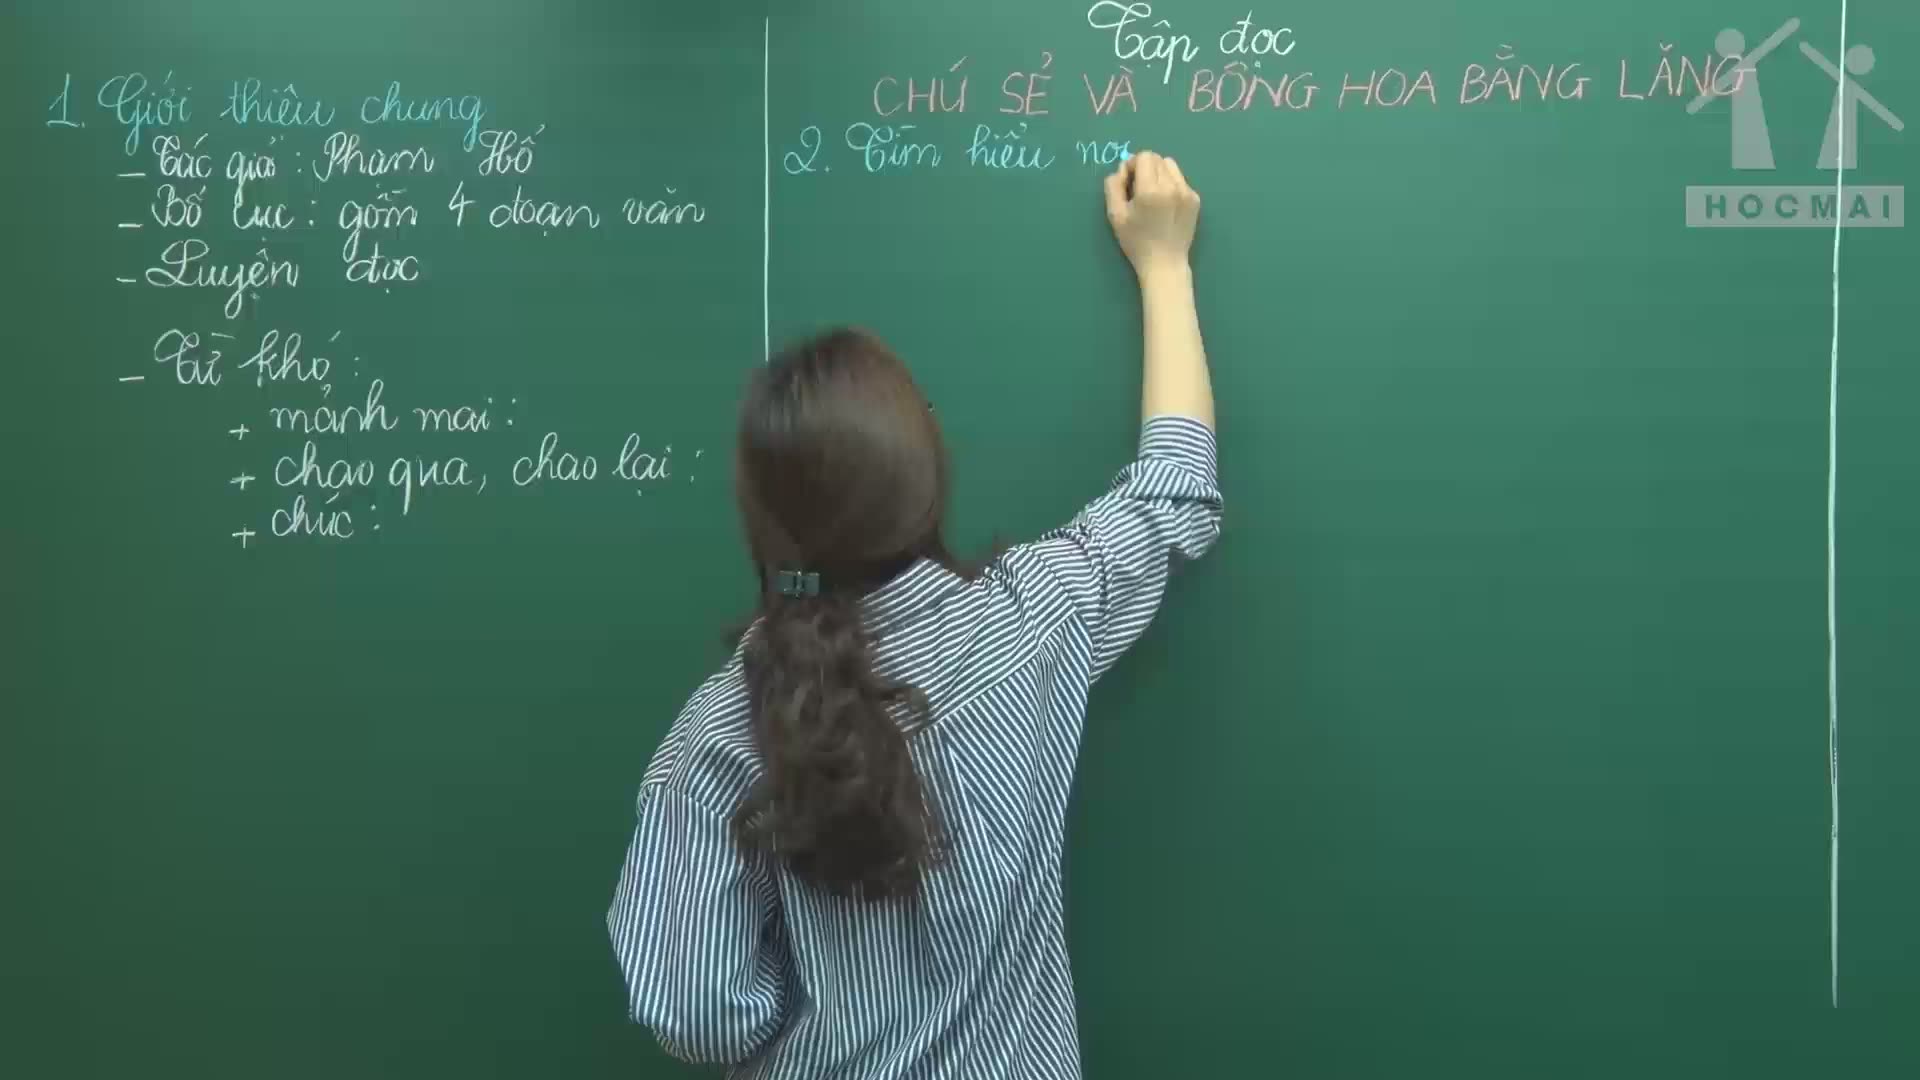 Tập đọc
CHÚ SẺ VÀ BÔNG HOA BẰNG LĂNG
1. Giới thiệu chung
- Tác giả : Phạm Hổ
- Bố cục : gồm 4 đoạn văn
- Luyện đọc
- Từ khó :
+ mảnh mai :
+ chao qua, chao lại :
+ chúc :
2. Tìm hiểu
HOCMAI